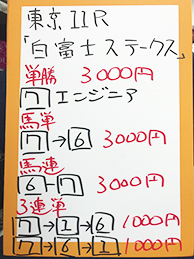 東京11R
「白富士ステークス」
単勝 3000円
7 エンジニア
馬単
7→6 3000円
馬連
6-7 3000円
3連単
7→1→6 1000円
7→6→1 1000円